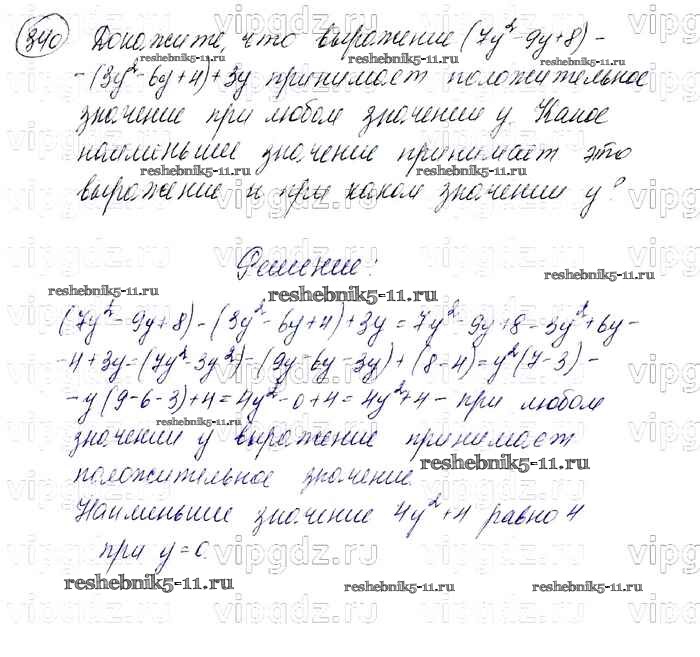 340 Докажите, что выражение (7y²-9y+8)-
-(3y²-6y+4)+3y принимает положительное
значение при любом значении y. Какое
наименьшее значение принимает это
выражение и при каком значении y?
Решение:
(7y²-9y+8)-(3y²-6y+4)+3y=7y²-9y+8-3y²+6y-
-4+3y=(7y²-3y²)-(9y-6y-3y)+(8-4)=y²(7-3)-
-y(9-6-3)+4=4y²-0+4=4y²+4 - при любом
значении y выражение принимает
положительное значение.
Наименьшее значение 4y²+4 равно 4
при y=0.
reshebnik5-11.ru
vipgdz.ru